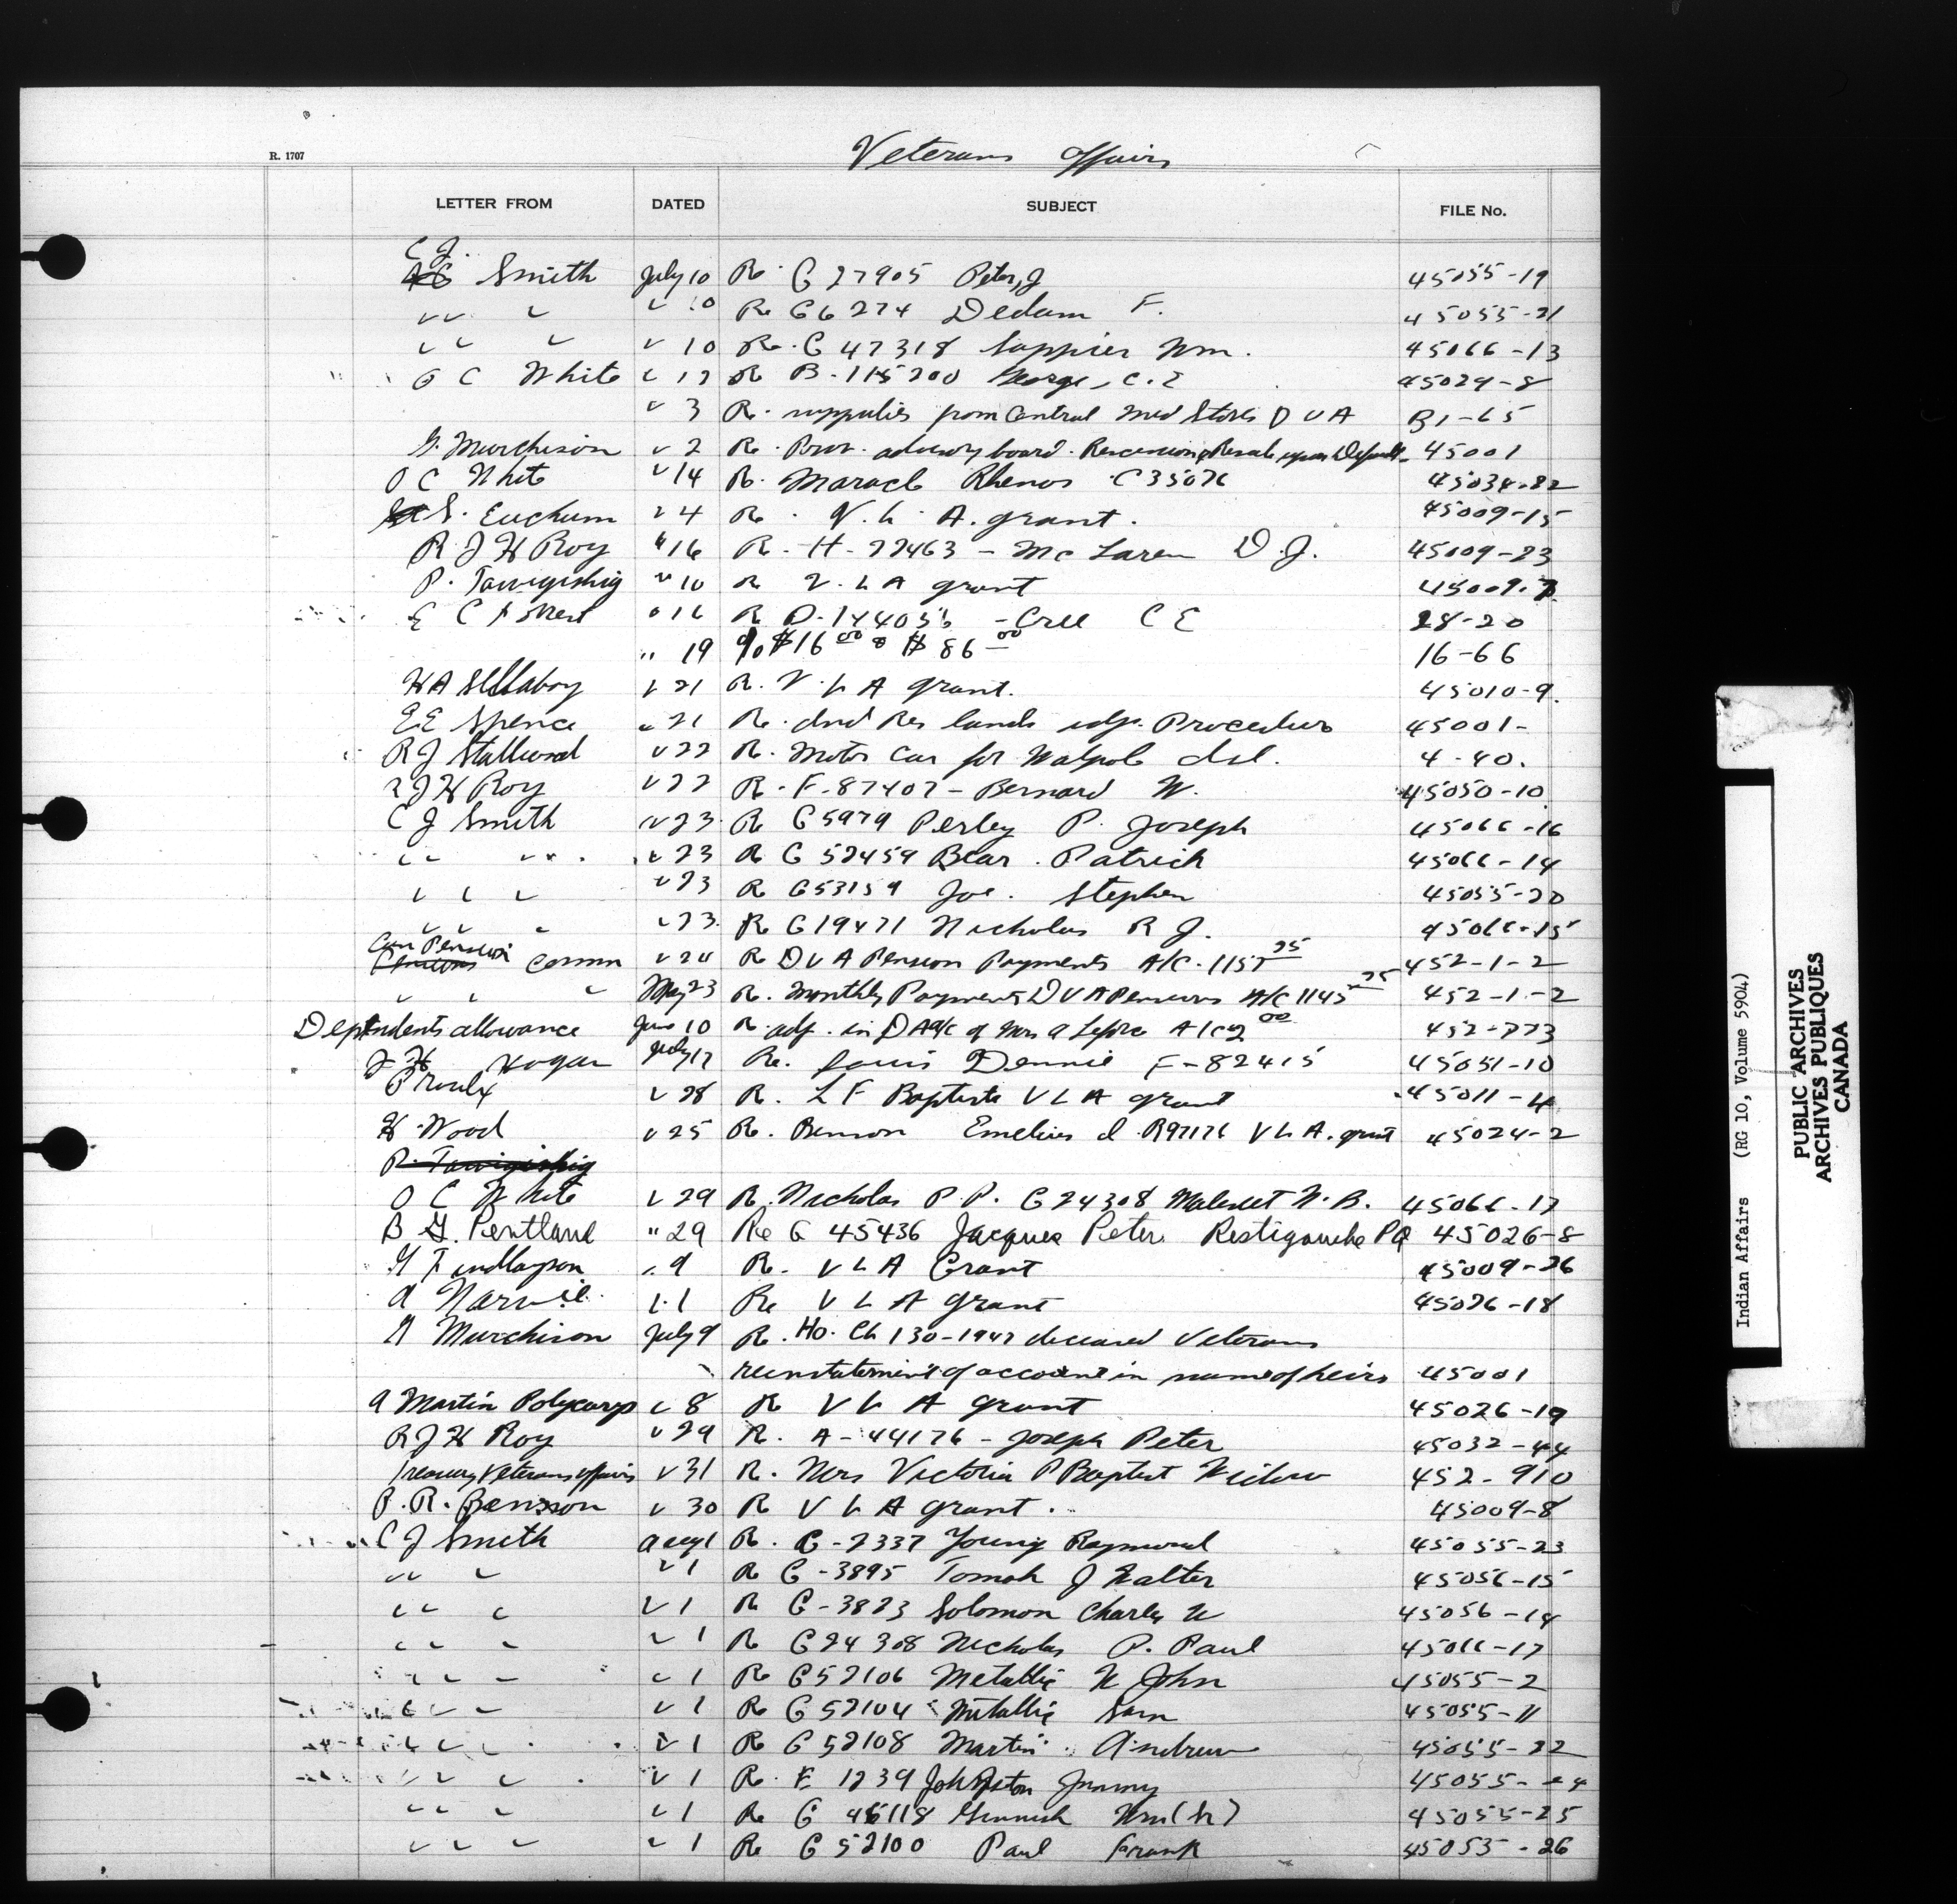 Veterans Affairs
R. 1707
LETTER FROM DATED SUBJECT FILE No.
C J.
Smith July 10 Re G 27905 Peter, J 45055-19
" " " 10 Re G 6274 Dedam F. 45055-21
" " " 10 Re. G 47318 Sappier Wm. 45066-13
O C White " 17 Re B-115200 George, C. E 45029-8
" 3 Re. suppulies from Central Med Stores D V A 31-65
G. Murchison " 2 Re. Prov. advisory board. & Resale upon Default 45001
O C White " 14 Re. Maracle Rhenos C 35076 45034-82
S. Euchum " 4 Re. V. L. A. grant. 45009-15
R J H Roy " 16 Re - H-77463 - McLaren D. J. 45009-23
P. Tawigishig " 10 Re V. L A grant 45009-7
E C " 16 Re D. 144055 - Cree C E 28-20
" 19 % $16 00 & $86 00 16-66
" 21 Re. V. L A grant. 45010-9.
E E Spence " 21 Re. Ind Res lands Procedure 45001-
R J Stallwood " 22 Re. Motor Car for Walpole Isl. 4-40.
R J H Roy " 22 Re. F-87407 - Bernard W. 45050-10
C J Smith " 23 Re G 5979 Perley P. Joseph 45066-16
" " " 23 Re G 52459 Bear. Patrick 45066-14
" " " " 23 Re G53159 Joe. Stephen 45055-20
" " " " 23 Re G 19471 Nicholas R J. 45066-15
Can Pension
Comm " 24 Re D V A Pension Payments A/C. 1157 25 452-1-2
" " May 23 Re. Monthly Payments D V A Pensions A/C 1145 25 452-1-2
Dependents allowance June 10 Re. adj. in D A a/c of Mrs A 452-773
J H Hogan July 17 Re. Louis Dennie F-82415 45051-10
Proulx " 28 Re. L F Baptiste V L A grant 45011-4
H Wood " 25 Re. Benson Emelius I. R97176 V L A. grant 45024-2
P. Tawigishig
O C White " 29 Re. Nicholas P. P. G 24308 Maliseet N. B. 45066-17
B G. Pentland " 29 Re G 45436 Jacques Peter Restigouche PQ 45026-8
G Findlayson " 9 Re. V L A Grant 45009-26
A Narvie " 1 Re V L A grant 45026-18
G Murchison July 9 Re. Ho. Ch 130-1947 deceased Veterans
reinstatement of account in name of heirs 45001
A Martin Polycarp " 8 Re V L A grant 45026-19
R J H Roy " 29 Re. A-44176 - Joseph Peter 45032-44
Treasury Veterans Affairs " 31 Re. Mrs Victoria P Baptist Widow 452-910
P. R. Benson " 30 Re V L A grant. 45009-8
C J Smith Aug 1 Re. G-2337 Young Raymond 45055-23
" " " 1 Re G-3895 Tomah J Walter 45056-15
" " " " 1 Re G-3823 Solomon Charles W 45056-14
" " " " 1 Re G24308 Nicholas P. Paul 45066-17
" " " " 1 Re G52106 Metallic W John 45055-2
" " " " 1 Re G 52104 Metallic Sam 45055-11
" " " " 1 Re G 52108 Martin Andrew 45055-22
" " " " 1 Re. F 1239 Johnston Jimmy 45055-24
" " " " 1 Re G 45118 Ginnish Wm (Sr) 45055-25
" " " " 1 Re G 52100 Paul Frank 45055-26
Indian Affairs (RG 10, Volume 5904)
PUBLIC ARCHIVES
ARCHIVES PUBLIQUES
CANADA